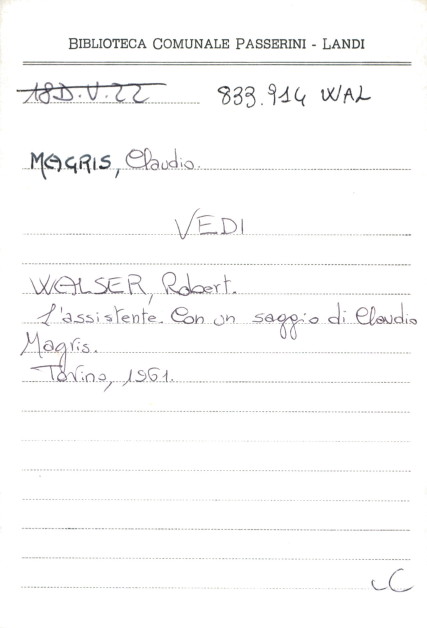 BIBLIOTECA COMUNALE PASSERINI - LANDI
18D.V.22 833.914 WAL
MAGRIS, Claudio.
VEDI
WALSER, Robert.
L'assistente. Con un saggio di Claudio
Magris.
Torino, 1961.